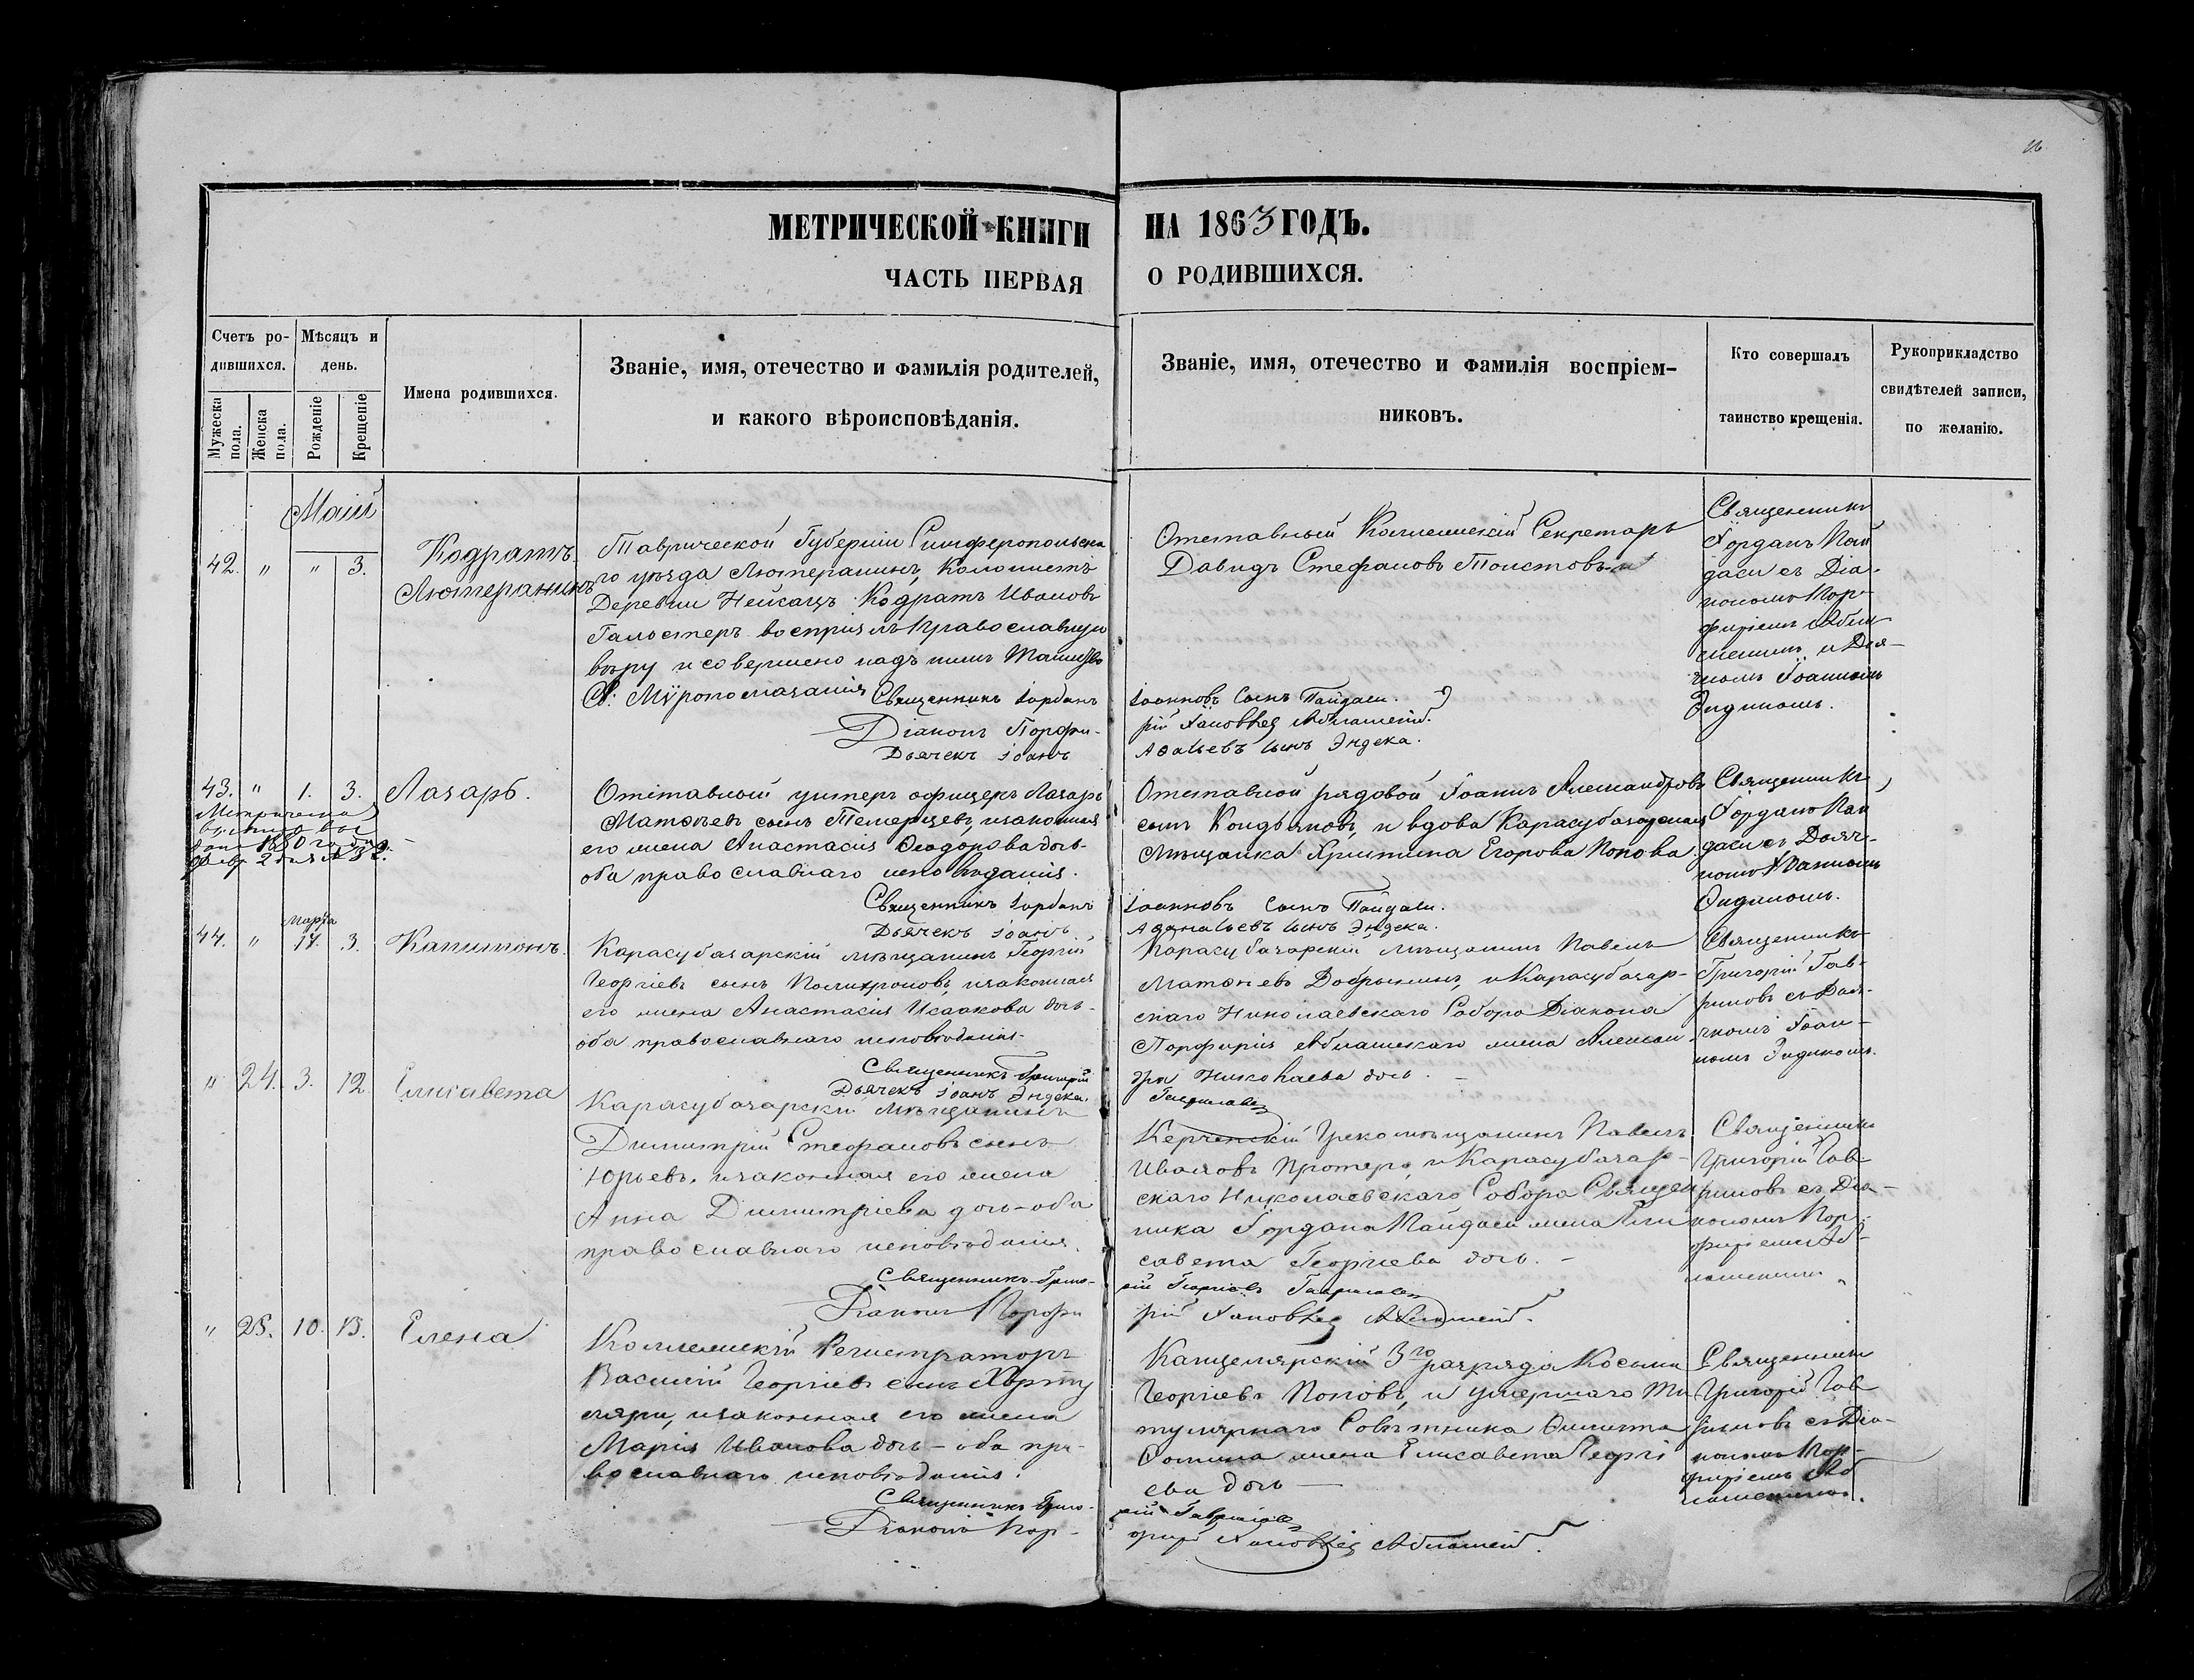 МЕТРИЧЕСКОЙ КНИГИ НА 1863 ГОДЪ.
ЧАСТЬ ПЕРВАЯ О РОДИВШИХСЯ.
Счетъ родившихся.
Мужеска пола.
Женска пола.
Мѣсяцъ и день.
Рожденіе
Крещеніе
Имена родившихся.
Званіе, имя, отечество и фамилія родителей,
и какого вѣроисповѣданія.
Званіе, имя, отечество и фамилія воспріем-
никовъ.
Кто совершалъ
таинство крещенія.
Рукоприкладство
свидѣтелей записи,
по желанію.
Маій
42. " " 3.
Кодратъ
Лютеранинъ
Таврической Губерніи Симферопольска
го уѣзда Лютеранинъ, Колонистъ
Деревни Нейзацъ Кодратъ Ивановъ
воспріялъ Православную
вѣру и совершено надъ нимъ Таинство
Св. Мѵропомазанія
Священникъ Іорданъ
Діаконъ Порфи-
Дьячекъ Іоанъ
Отставный Коллежскій Секретарь
Давидъ Стефановъ
Іоанновъ Сынъ Пайдаси.
рій Яковлев Аблашекій.
Афанасьевъ сынъ Эндека.
Священникъ
Іорданъ Пай
даси съ Діа-
кономъ Пор-
фиріемъ Абла
шекимъ и Дья-
чкомъ Іоанномъ
Эндикомъ.
43. " 1. 3. Лазарь.
Отставной унтеръ офицеръ Лазарь
Матѳѣевъ сынъ и законная
его жена Анастасія Ѳеодорова дочь
оба православнаго исповѣданія.
Священникъ Іорданъ
Дьячекъ Іоанъ
Отставной рядовой Іоаннъ Александровъ
сынъ Кондьяновъ, и вдова Карасубазарская
Мѣщанка Христина Егорова Попова
Іоанновъ сынъ Пайдаси.
Афанасьевъ сынъ Эндека.
Священникъ
Іорданъ Пай
даси съ Дьяч-
комъ Іоанномъ
Эндикомъ.
44. " Марта 17. 3. Капитонъ.
Карасубазарскій мѣщанинъ Георгій
Георгіевъ сынъ Полихроновъ, и законная
его жена Анастасія Исаакова дочь-
оба православнаго исповѣданія.
Священникъ Григорій
Дьячекъ Іоанъ Эндека.
Карасубазарскій мѣщанинъ Павелъ
Матѳѣевъ Добрынинъ, и Карасубазар-
скаго Николаевскаго Собора Діакона
Порфирія Аблашекаго жена Алексан
дра Николаева дочь.
Гавриловъ
Священникъ
Григорій Гав-
риловъ съ Дья-
чкомъ Іоан-
номъ Эндикомъ.
" 24. 3. 12. Елисавета
Карасубазарскій мѣщанинъ
Димитрій Стефановъ сынъ
Юрьевъ, и законная его жена
Анна Димитріева дочь - оба
православнаго исповѣданія.
Священникъ Григо-
Діаконъ Порфи
Керченскій Грекомѣщанинъ Павелъ
Ивановъ и Карасубазар-
скаго Николаевскаго Собора Священ
ника Іордана Пайдаси жена Ели
савета Георгіева дочь. -
рій Георгіевъ Гавриловъ
рій Яковлев Аблашекій.
Священникъ
Григорій Гав
риловъ съ Діа-
кономъ Пор-
фиріемъ Аб-
лашекимъ
" 25. 10. 13. Елена
Коллежскій Регистраторъ
Василій Георгіевъ сынъ
и законная его жена
Марія Иванова дочь - оба пра-
вославнаго исповѣданія.
Священникъ Григо-
Діаконъ Пор-
Канцелярскій 3го разряда Косьма
Георгіевъ Поповъ, и умершаго Ти
тулярнаго Совѣтника
жена Елисавета Георгі
ева дочь
рій Гавриловъ
фирій Яковлев Аблашекій.
Священникъ
Григорій Гав
риловъ съ Діа-
кономъ Пор-
фиріемъ Аб
лашекимъ.